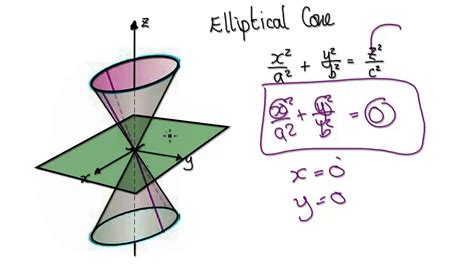 Elliptical Cone
z
x²/a² + y²/b² = z²/c²
x²/a² + y²/b² = 0
x
y
x = 0
y = 0